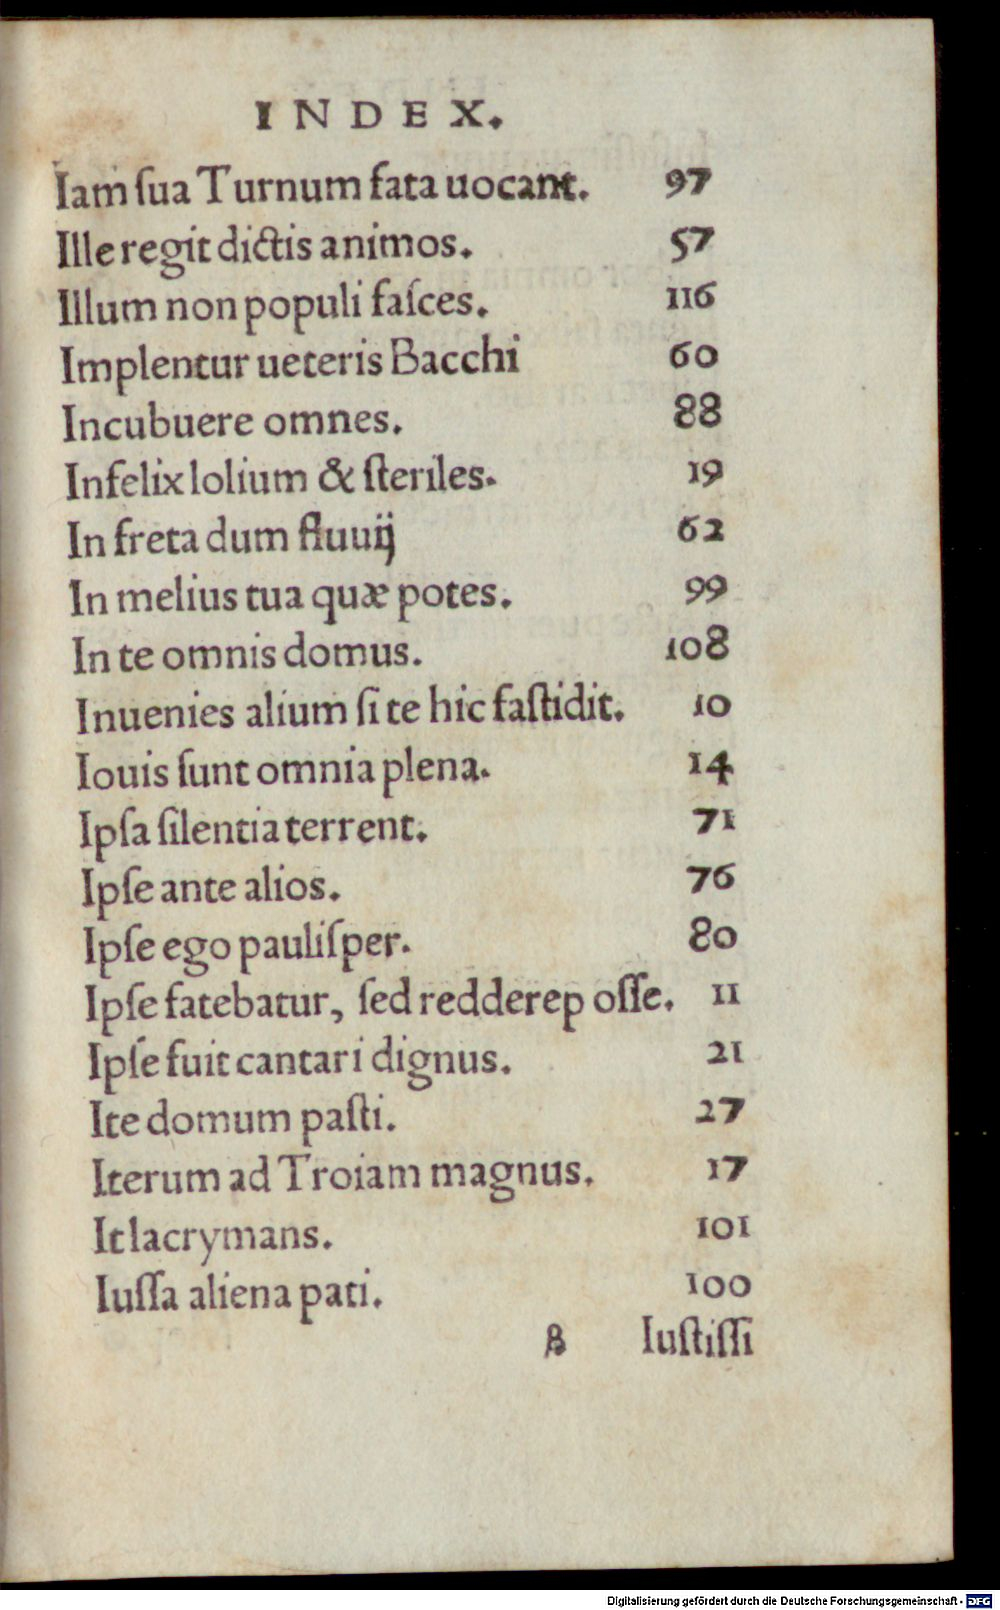 INDEX.
Iam ſua Turnum fata uocant. 97
Ille regit dictis animos. 57
Illum non populi faſces. 116
Implentur ueteris Bacchi 60
Incubuere omnes. 88
Infelix lolium & ſteriles. 19
In freta dum fluuij 62
In melius tua quæ potes. 99
In te omnis domus. 108
Inuenies alium ſi te hic faſtidit. 10
Iouis ſunt omnia plena. 14
Ipſa ſilentia terrent. 71
Ipſe ante alios. 76
Ipſe ego pauliſper. 80
Ipſe fatebatur, ſed redderep oſſe. 11
Ipſe fuit cantari dignus. 21
Ite domum paſti. 27
Iterum ad Troiam magnus. 17
It lacrymans. 101
Iuſſa aliena pati. 100
β Iuſtiſſi
Digitalisierung gefördert durch die Deutsche Forschungsgemeinschaft - DFG